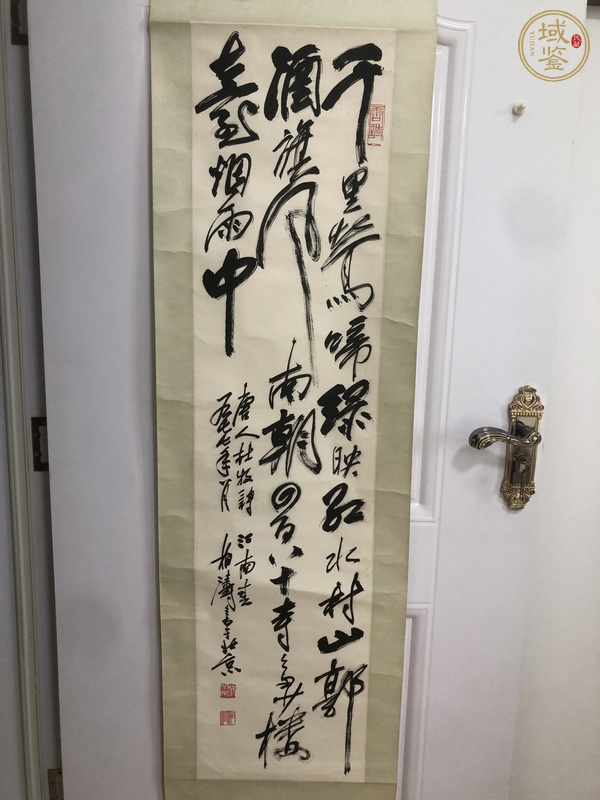 千里莺啼绿映红水村山郭
酒旗风南朝四百八十寺多少楼
台烟雨中
唐人杜牧詩江南春
一九七七年八月柏濤書于北京
域鉴
YUJIAN